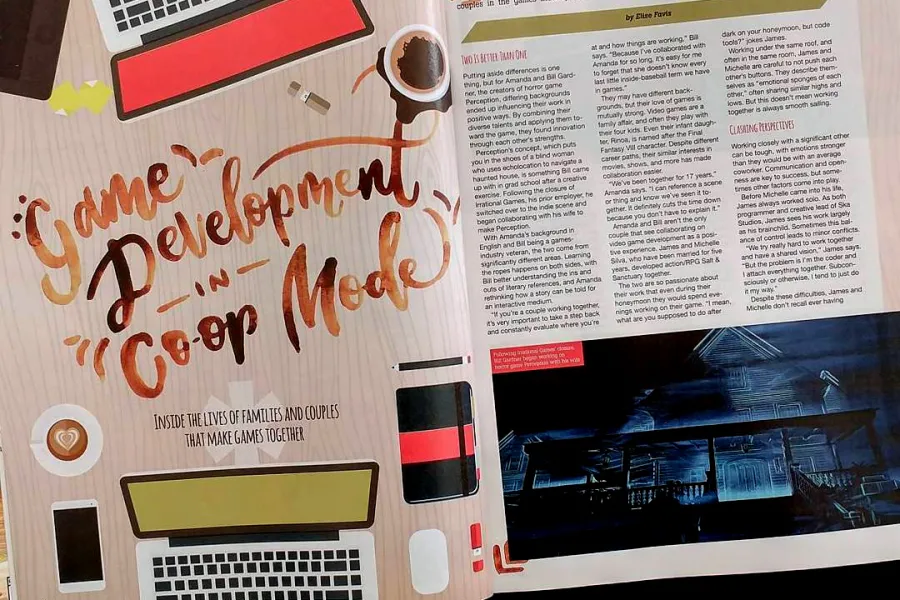 Game
Development
IN
Co-op Mode
INSIDE THE LIVES OF FAMILIES AND COUPLES
THAT MAKE GAMES TOGETHER
couples in the games
by Elise Favis
TWO IS BETTER THAN ONE
Putting aside differences is one
thing, but for Amanda and Bill Gard-
ner, the creators of horror game
Perception, differing backgrounds
ended up influencing their work in
positive ways. By combining their
diverse talents and applying them to-
ward the game, they found innovation
through each other's strengths.
Perception's concept, which puts
you in the shoes of a blind woman
who uses echolocation to navigate a
haunted house, is something Bill came
up with in grad school after a creative
exercise. Following the closure of
Irrational Games, his prior employer, he
switched over to the indie scene and
began collaborating with his wife to
make Perception.
With Amanda's background in
English and Bill being a games-
industry veteran, the two come from
significantly different areas. Learning
the ropes happens on both sides, with
Bill better understanding the ins and
outs of literary references, and Amanda
rethinking how a story can be told for
an interactive medium.
"If you're a couple working together,
it's very important to take a step back
and constantly evaluate where you're
at and how things are working," Bill
says. "Because I've collaborated with
Amanda for so long, it's easy for me
to forget that she doesn't know every
last little inside-baseball term we have
in games."
They may have different back-
grounds, but their love of games is
mutually strong. Video games are a
family affair, and often they play with
their four kids. Even their infant daugh-
ter, Rinoa, is named after the Final
Fantasy VIII character. Despite different
career paths, their similar interests in
movies, shows, and more has made
collaboration easier.
"We've been together for 17 years,"
Amanda says. "I can reference a scene
or thing and know we've seen it to-
gether. It definitely cuts the time down
because you don't have to explain it."
Amanda and Bill aren't the only
couple that see collaborating on
video game development as a posi-
tive experience. James and Michelle
Silva, who have been married for five
years, developed action/RPG Salt &
Sanctuary together.
The two are so passionate about
their work that even during their
honeymoon they would spend eve-
nings working on their game. "I mean,
what are you supposed to do after
dark on your honeymoon, but code
tools?" jokes James.
Working under the same roof, and
often in the same room, James and
Michelle are careful to not push each
other's buttons. They describe them-
selves as "emotional sponges of each
other," often sharing similar highs and
lows. But this doesn't mean working
together is always smooth sailing.
CLASHING PERSPECTIVES
Working closely with a significant other
can be tough, with emotions stronger
than they would be with an average
coworker. Communication and open-
ness are key to success, but some-
times other factors come into play.
Before Michelle came into his life,
James always worked solo. As both
programmer and creative lead of Ska
Studios, James sees his work largely
as his brainchild. Sometimes this bal-
ance of control leads to minor conflicts.
"We try really hard to work together
and have a shared vision," James says.
"But the problem is I'm the coder and
I attach everything together. Subcon-
sciously or otherwise, I tend to just do
it my way."
Despite these difficulties, James and
Michelle don't recall ever having
Following Irrational Games' closure,
Bill Gardner began working on
horror game Perception with his wife